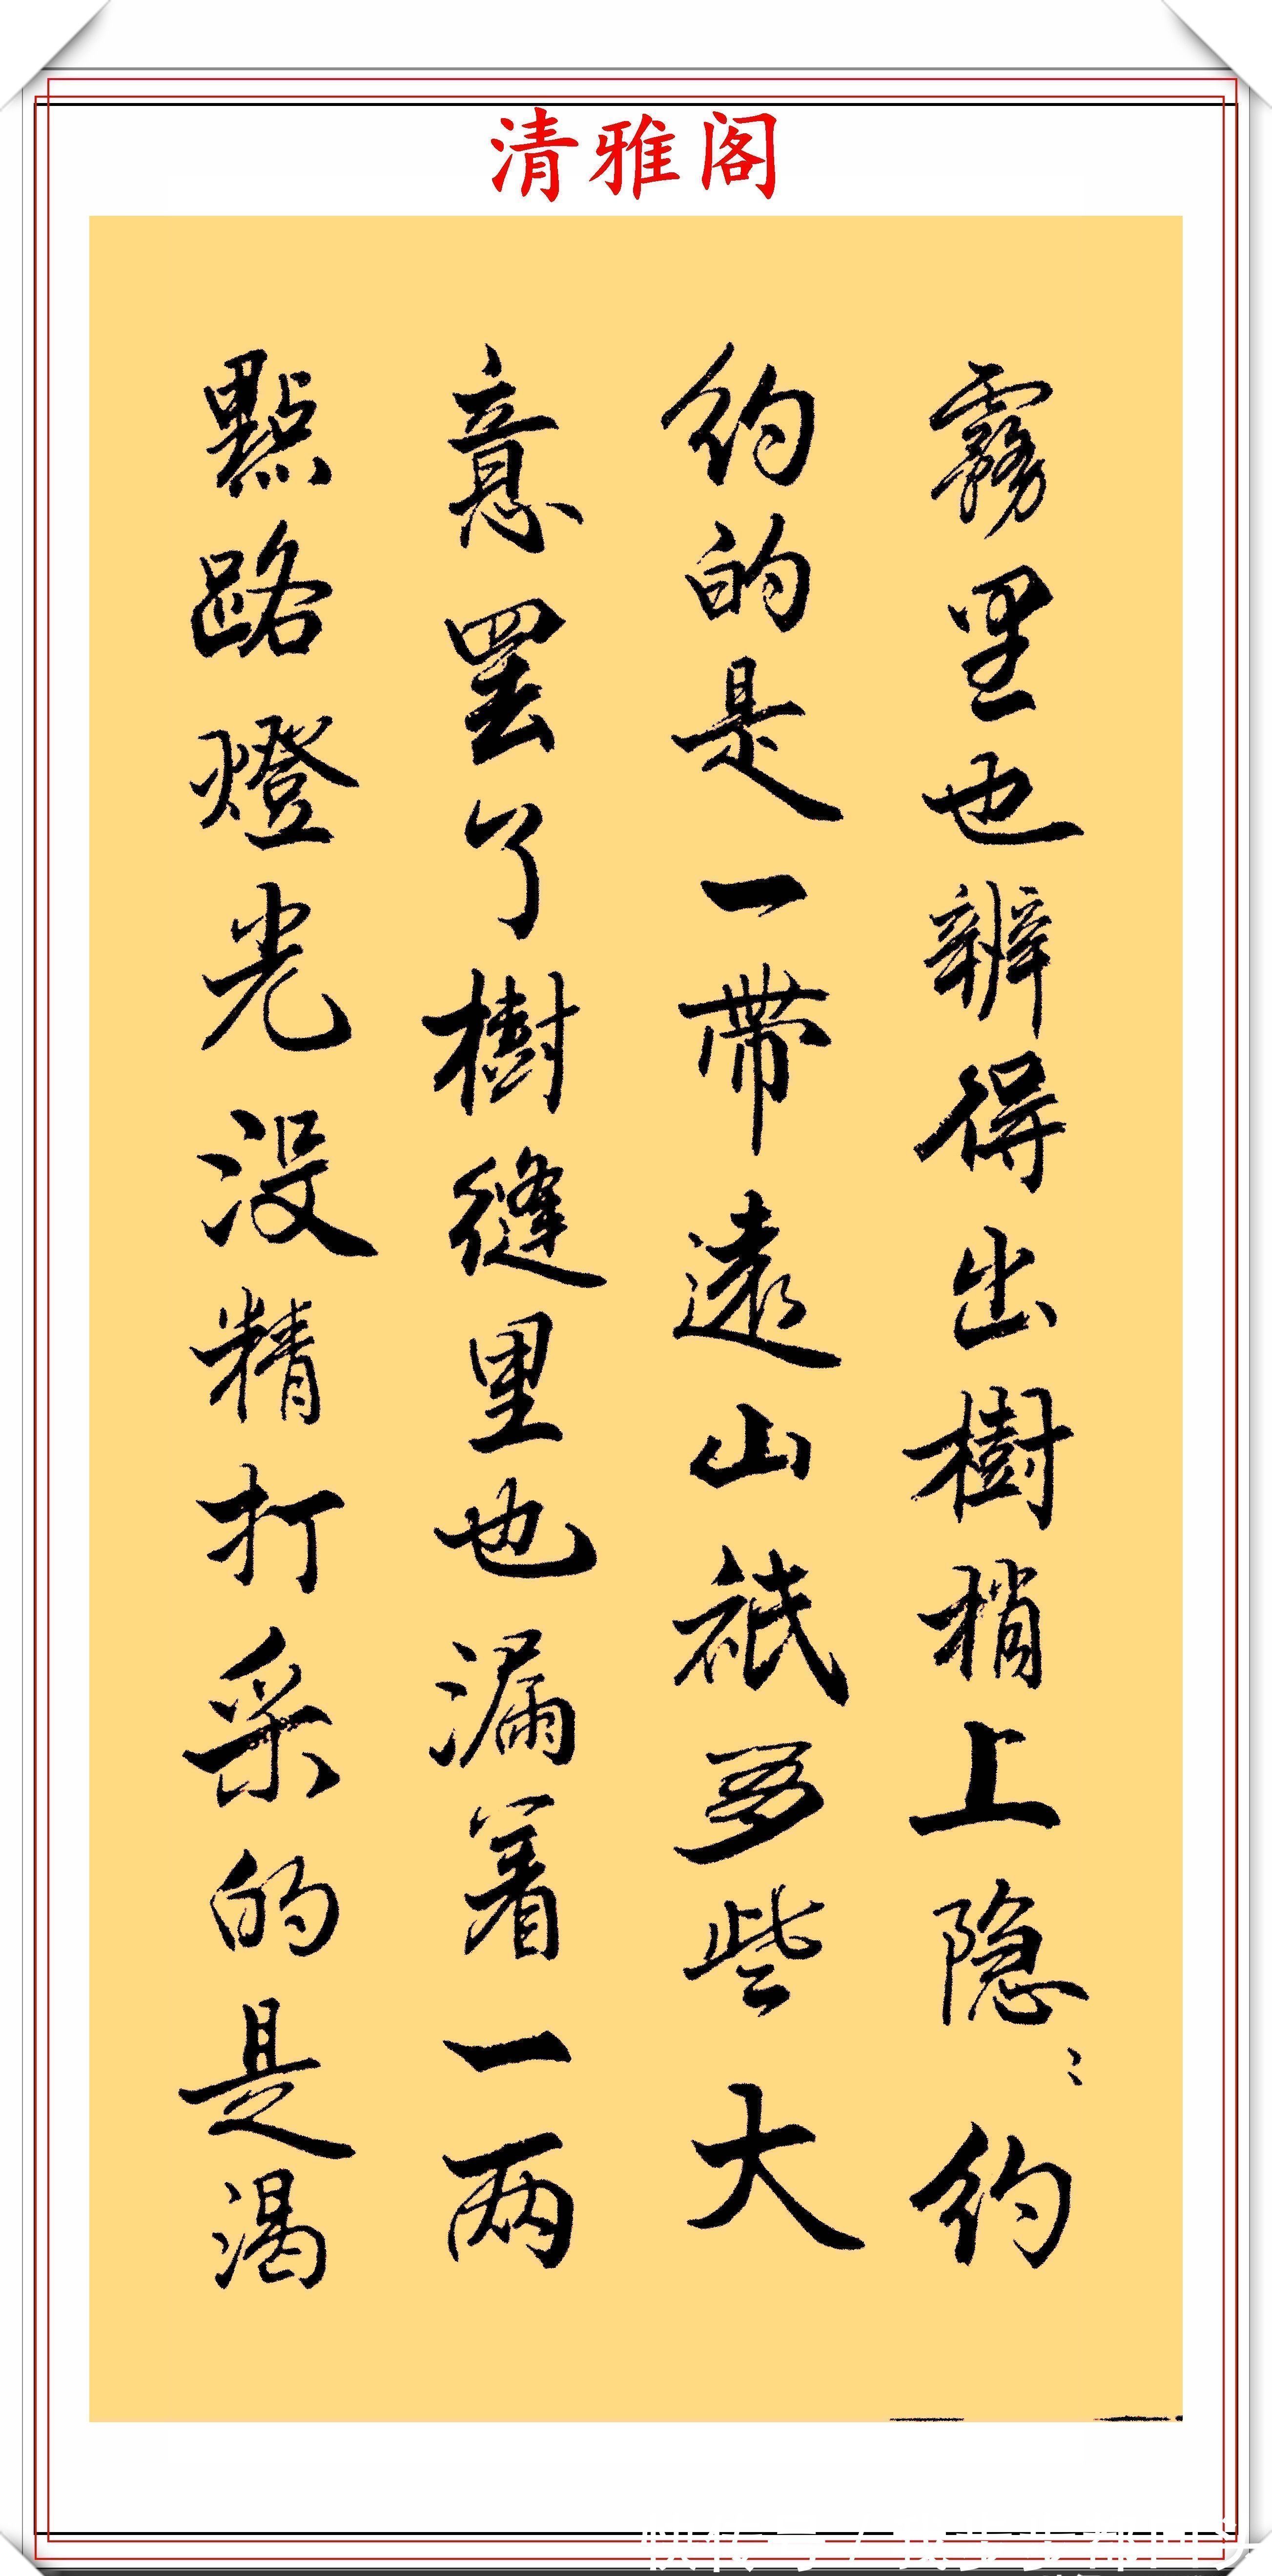 清雅阁
霧里也辨得出樹梢上隐〻约
约的是一帶遠山衹多些大
意罢了樹縫里也漏着一两
點路燈光没精打采的是渴